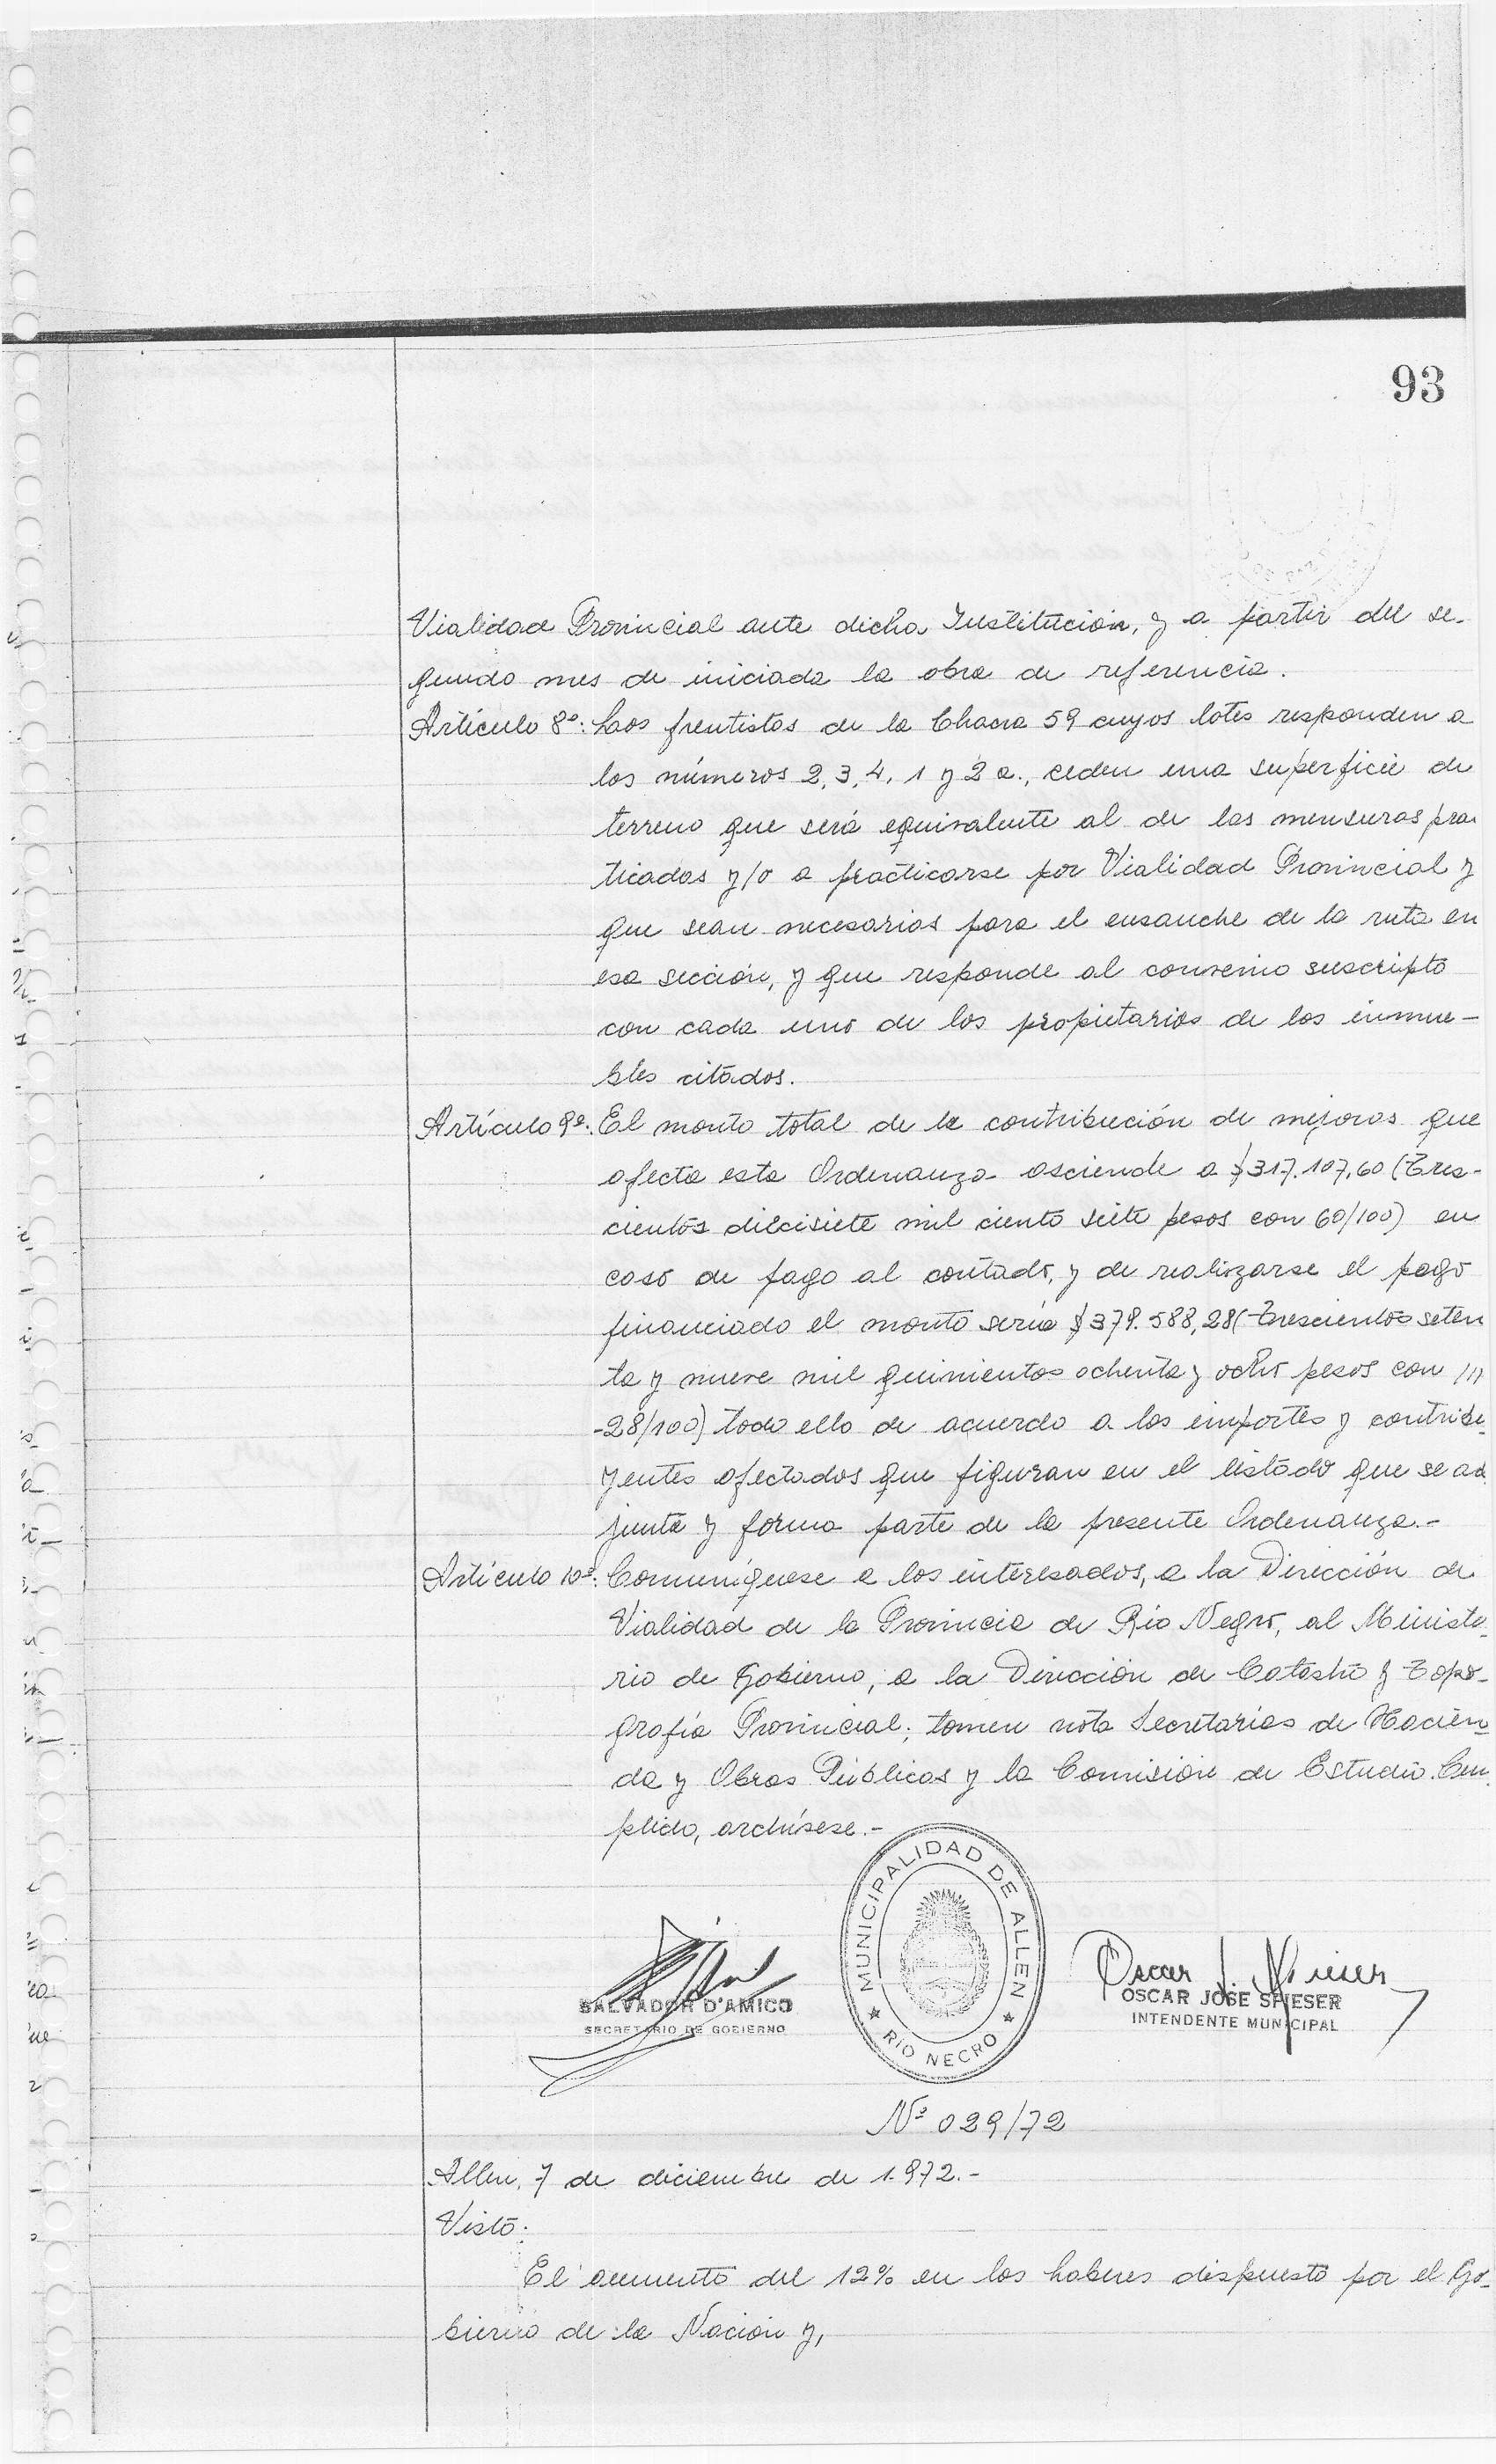 93
Vialidad Provincial ante dicha Institución, y a partir del se-
gundo mes de iniciada la obra de referencia.
Artículo 8º: Los frentistas de la Chacra 59 cuyos lotes responden a
los números 2, 3, 4, 1 y 2 a., ceden una superficie de
terreno que será equivalente al de las mensuras prac
ticadas y/o a practicarse por Vialidad Provincial y
que sean necesarias para el ensanche de la ruta en
esa sección, y que responde al convenio suscripto
con cada uno de los propietarios de los inmue-
bles citados.
Artículo 9º: El monto total de la contribución de mejoras que
afecta esta Ordenanza asciende a $317.107,60 (Tres-
cientos diecisiete mil ciento siete pesos con 60/100) en
caso de pago al contado, y de realizarse el pago
financiado el monto sería $379.588,28 (Trescientos seten
ta y nueve mil quinientos ochenta y ocho pesos con ///
-28/100) todo ello de acuerdo a los importes y contribu-
yentes afectados que figuran en el listado que se ad
junta y forma parte de la presente Ordenanza.-
Artículo 10º: Comuníquese a los interesados, a la Dirección de
Vialidad de la Provincia de Río Negro, al Ministe-
rio de Gobierno, a la Dirección de Catastro y Topo-
grafía Provincial; tomen nota Secretarías de Hacien-
da y Obras Públicas y la Comisión de Estudio. Cum-
plido, archívese.-
MUNICIPALIDAD DE ALLEN
RIO NEGRO
SALVADOR D'AMICO
SECRETARIO DE GOBIERNO
Oscar J. Spieser
OSCAR JOSE SPIESER
INTENDENTE MUNICIPAL
Nº 029/72
Allen, 7 de diciembre de 1.972.-
Visto:
El aumento del 12% en los haberes dispuesto por el Go-
bierno de la Nación y,